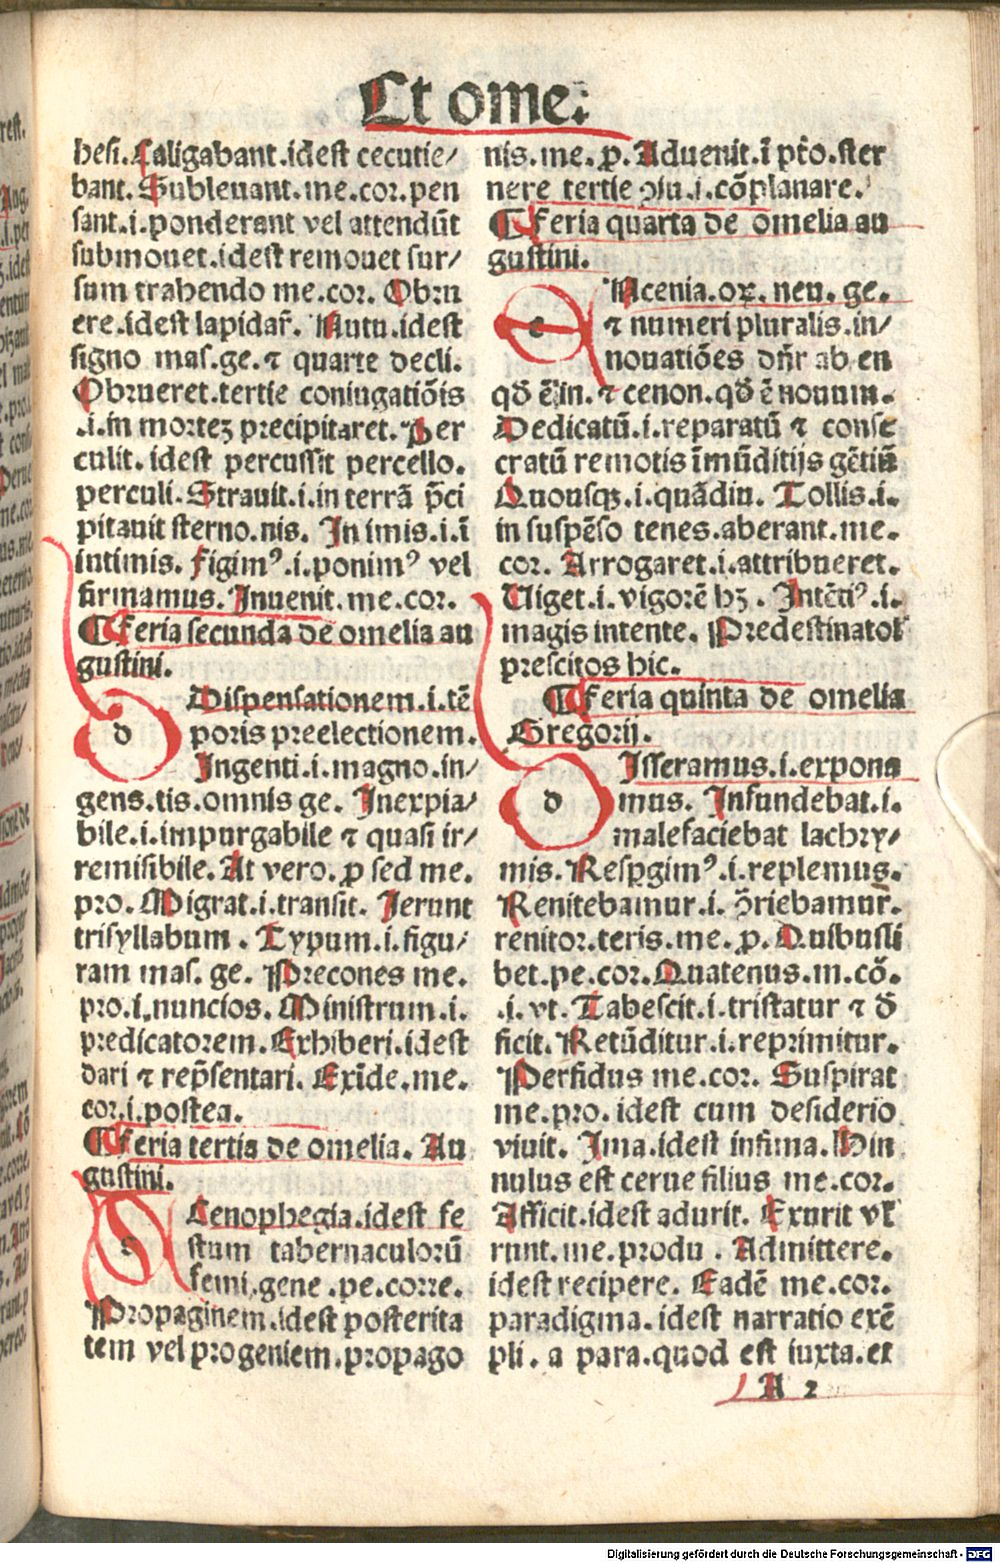 Et ome.
hesi. Caligabant.idest cecutie/
bant. Subleuant.me.cor.pen
sant.i.ponderant vel attendūt
submouet.idest remouet sur/
sum trahendo me.cor. Obru
ere.idest lapidar̄. Nutu.idest
signo mas.ge.⁊ quarte decli.
Obrueret.tertie coniugatiōis
.i.in mortēꝫ precipitaret. Per
culit. idest percussit percello.
perculi. Strauit.i.in terrā p̄ci
pitauit sterno.nis. In imis.i.ī
intimis. figimꝰ.i.ponimꝰ vel
firmamus. Inuenit.me.cor.
¶ feria secunda de omelia au
gustini.
d Dispensationem.i.tē
poris preelectionem.
Ingenti.i.magno.in/
gens.tis.omnis ge. Inexpia/
bile.i.impurgabile ⁊ quasi ir/
remisibile. At vero. ꝓ sed me.
pro. Migrat.i.transit. Ierunt
trisyllabum . Typum.i.figu/
ram mas. ge. Precones me.
pro.i.nuncios. Ministrum.i.
predicatorem. Exhiberi.idest
dari ⁊ rep̄sentari. Exīde.me.
cor.i.postea.
¶ feria tertia de omelia. Au
gustini.
s Cenophegia.idest fe
stum tabernaculorū
femi.gene .pe.corre.
Propaginem.idest posterita
tem vel progeniem.propago
nis.me.ꝓ. Aduenit.ī pt̄o.ster
nere tertie ꝯiu.i.cōplanare.
¶ feria quarta de omelia au
gustini.
e Ncenia.oꝝ. neu. ge.
⁊ numeri pluralis.in/
nouatiōes dn̄r ab en
qd̄ ē in.⁊ cenon.qd̄ ē nouum.
Dedicatū.i.reparatū ⁊ conse
cratū remotis īmūditijs gētiū
Quousqꝫ.i.quādiu. Tollis.i.
in suspēso tenes.aberant.me.
cor. Arrogaret.i.attribueret.
Uiget.i.vigorē hꝫ. Intētiꝰ.i.
magis intente. Predestinatos
prescitos hic.
¶ feria quinta de omelia
Gregorij.
d Isseramus.i.expona
mus. Infundebat.i.
malefaciebat lachry/
mis. Resꝑgimꝰ.i.replemus.
Renitebamur.i. ꝯ̄riebamur.
renitor.teris.me.ꝓ. Quibusli
bet.pe.cor. Quatenus.m.cō.
.i.vt. Tabescit.i.tristatur ⁊ d̄
ficit. Retūditur.i.reprimitur.
Perfidus me.cor. Suspirat
me.pro. idest cum desiderio
viuit. Ima.idest infima. Hin
nulus est cerue filius me.cor.
Afficit.idest adurit. Exurit vł
runt.me.produ . Admittere.
idest recipere. Eadē me.cor.
paradigma.idest narratio exē
pli. a para.quod est iuxta.et
A 2
Digitalisierung gefördert durch die Deutsche Forschungsgemeinschaft - DFG